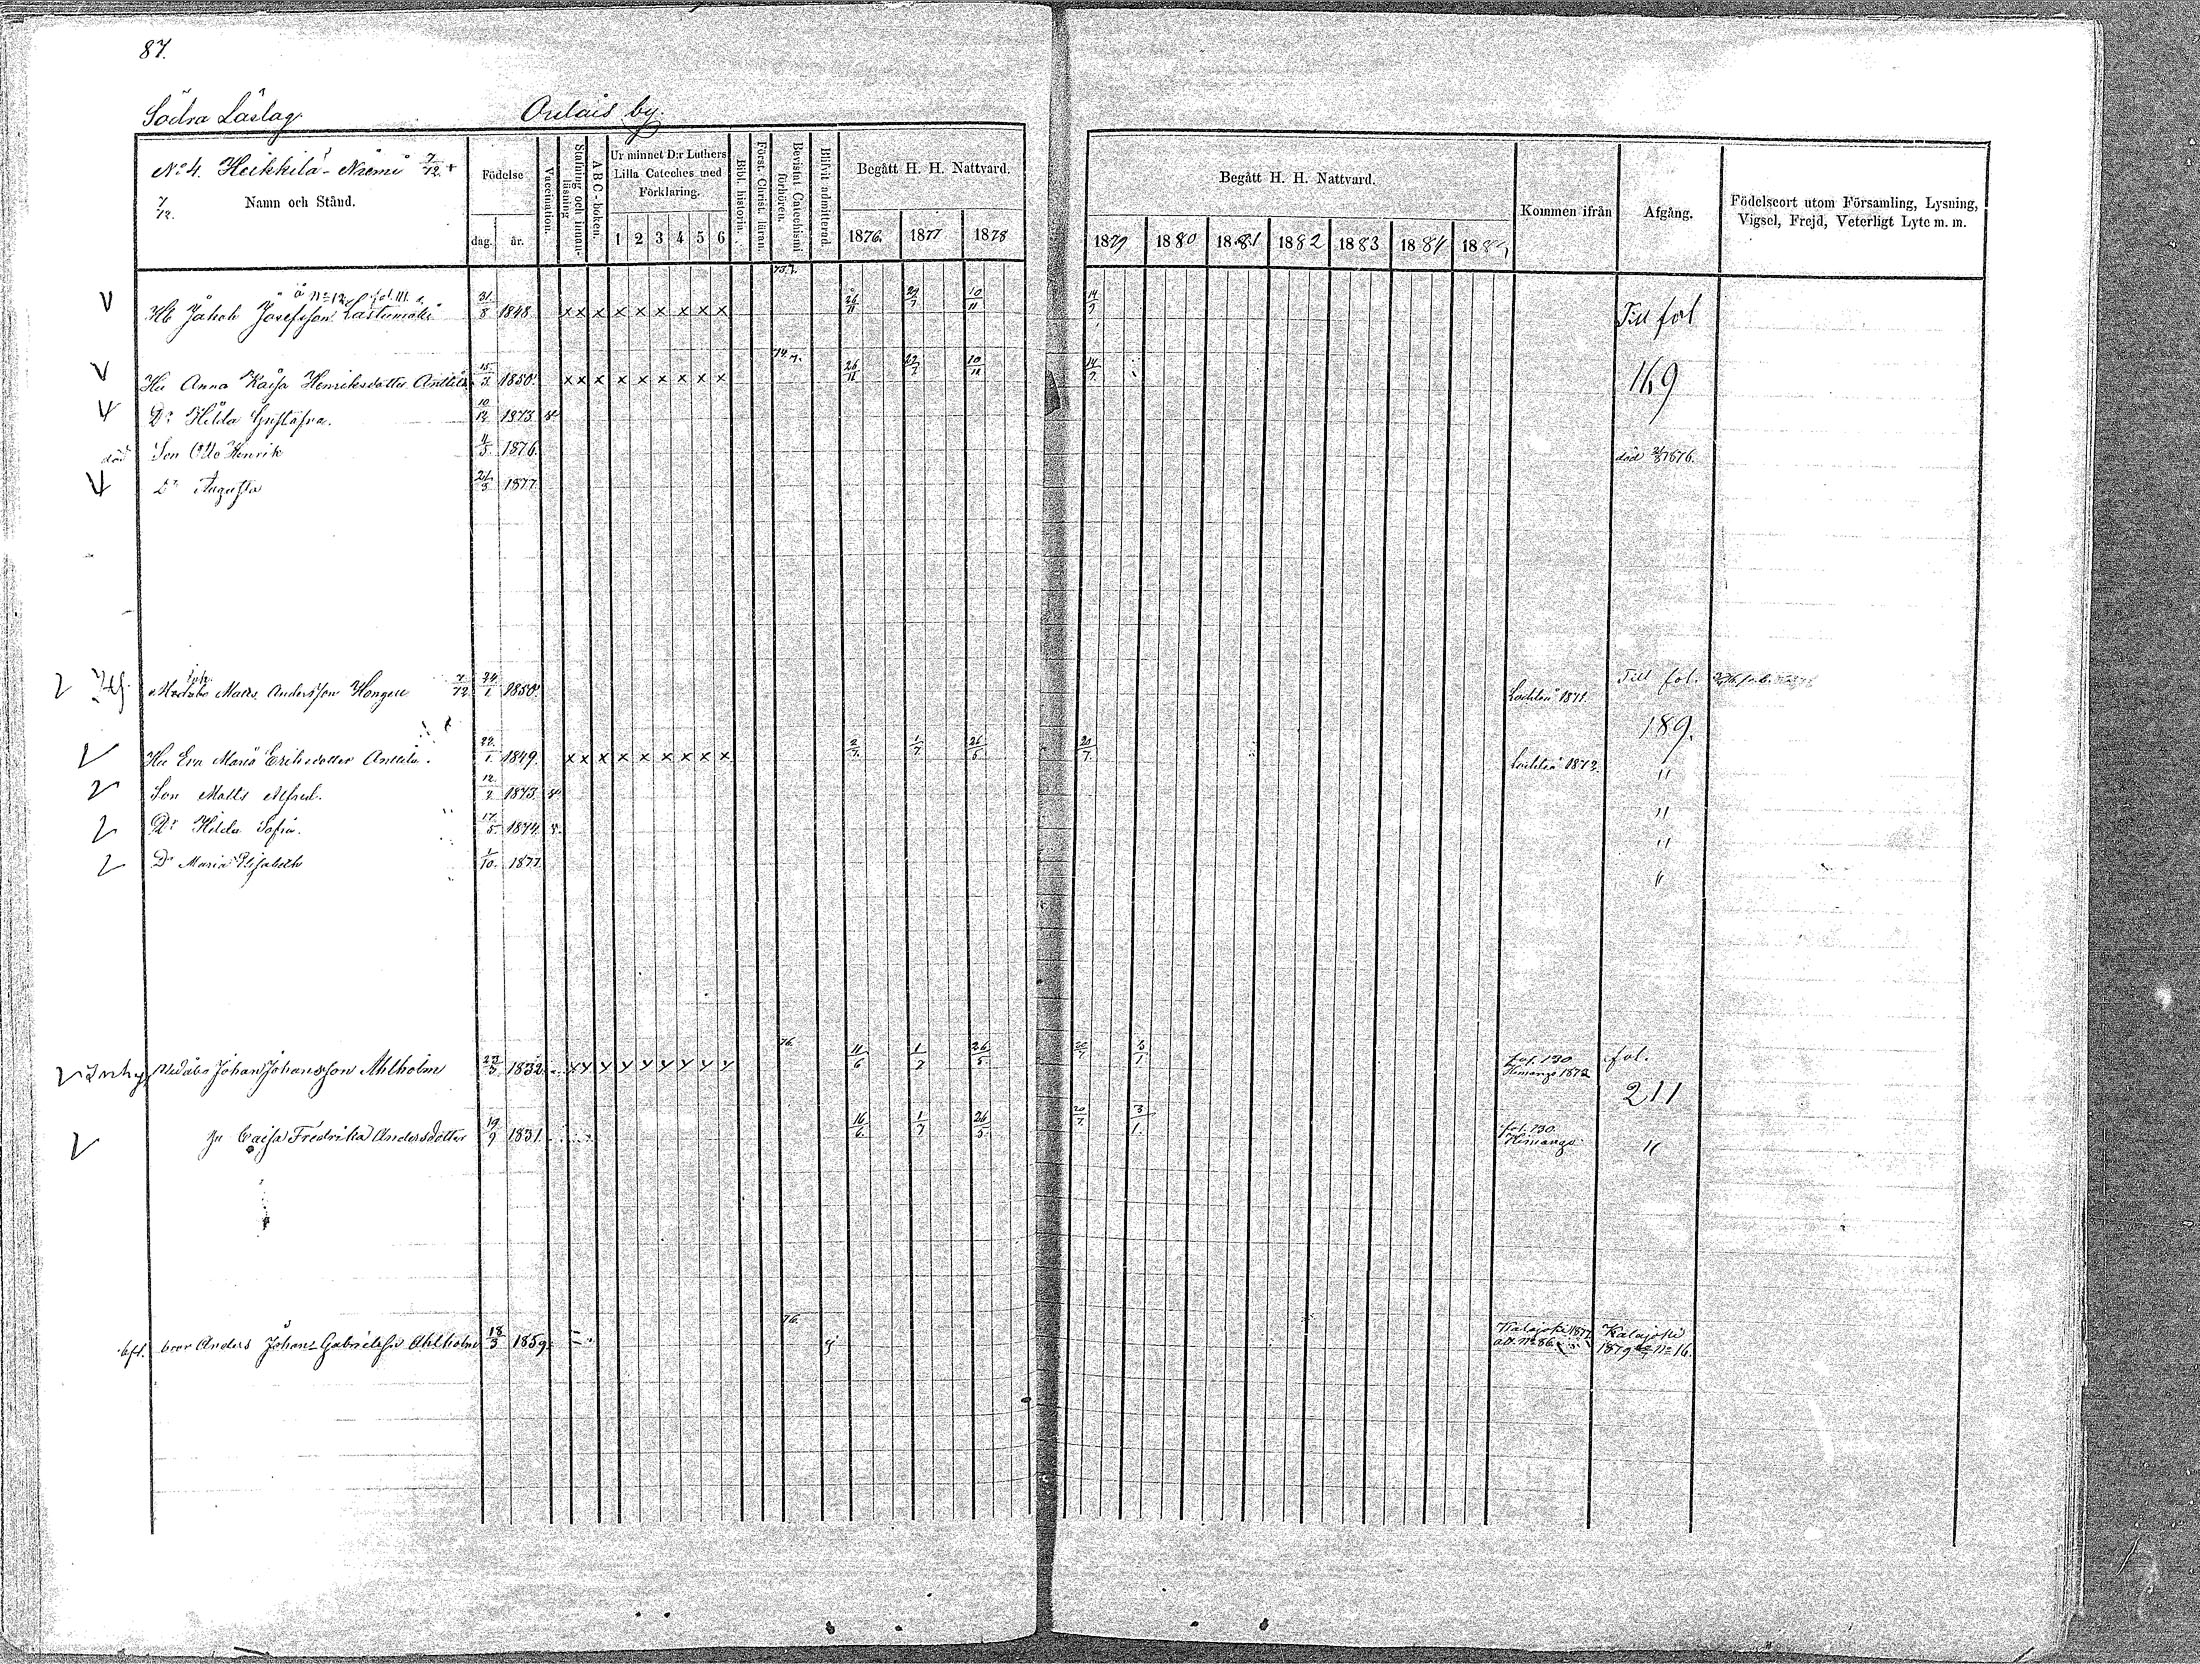 87.
Södra Läslag.
Oulais by.
No 4. Heikkilä - Niemi 7/12 +
7/12. Namn och Stånd.
Födelse
dag. år.
Vaccination.
Stafning och Innanläsning
A B C-boken.
Ur minnet D:r Luthers Lilla Cateches med Förklaring.
1 2 3 4 5 6
Bibl. historien.
Först. Christ. läran.
Bevistat Catechismi förhören.
Blifvit admitterad.
Begått H. H. Nattvard.
1876. 1877 1878
Begått H. H. Nattvard.
1879 1880 1881 1882 1883 1884
Kommen ifrån
Afgång.
Födelseort utom Församling, Lysning, Vigsel, Frejd, Veterligt Lyte m. m.
å No 12 fol. 111
Jakob Josefsson Lastumäki 31/8 1848 x x x x x x x x x 10/11 14/9 Till fol
Hu Anna Kaisa Henriksdotter Anttila 15/3 1850. x x x x x x x x x 26/11 22/7 10/11 14/9 169
Dr Hilda Gustafva. 10/12 1873
död Son Otto Henrik 4/3 1876. död 1876.
Dr Augusta 1877.
Matts Andersson Honga 7/12 24/1 1850. Lochteå 1871. Till fol.
189.
Hu Eva Maria Eriksdotter Anttila. 22/1 1849. x x x x x x x x x 2/7 1/7 26/5 20/7 Lochteå 1872. "
Son Matts Alfred. 1873. "
Dr Hilda Sofia. 17/5 1874. "
Dr Maria Elisabeth 1/10. 1877. "
Johan Johansson Ahlholm 1832 76. 11/6 26/5 fol. 130 Himango 1872 fol.
211
Hu Caisa Fredrika Andersdotter 19/9 1831. 16/6 1/7 26/5 20/7 3/1. fol. 130. Himango "
bror Anders Johan Gabrielsn Ahlholm 18/3 1859. 76. Kalajoki 1877 att. No 86 Kalajoki 1879 No 16.